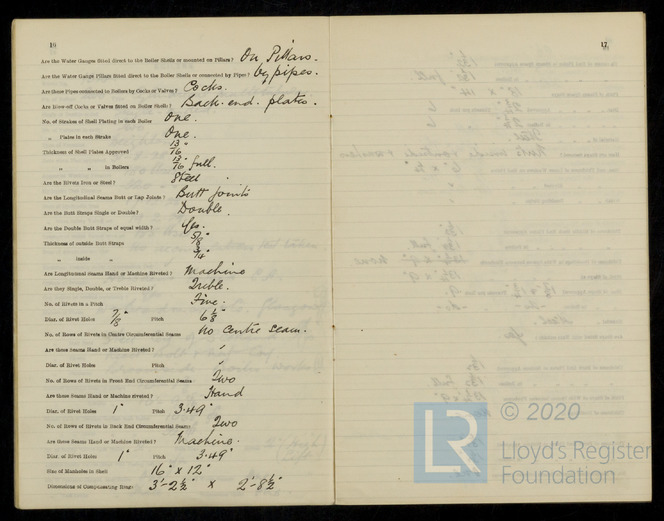 16
Are the Water Gauges fitted direct to the Boiler Shells or mounted on Pillars? On Pillars.
Are the Water Gauge Pillars fitted direct to the Boiler Shells or connected by Pipes? by pipes.
Are these Pipes connected to Boilers by Cocks or Valves? Cocks.
Are Blow-off Cocks or Valves fitted on Boiler Shells? Back end plates.
No. of Strakes of Shell Plating in each Boiler One.
„ Plates in each Strake One.
Thickness of Shell Plates Approved 13/16"
„ „ in Boilers 13/16" full.
Are the Rivets Iron or Steel? Steel
Are the Longitudinal Seams Butt or Lap Joints? Butt joints
Are the Butt Straps Single or Double? Double.
Are the Double Butt Straps of equal width? Yes.
Thickness of outside Butt Straps 5/8"
„ inside „ 3/4"
Are Longitudinal Seams Hand or Machine Riveted? Machine
Are they Single, Double, or Treble Riveted? Treble.
No. of Rivets in a Pitch Five.
Diar. of Rivet Holes 7/8" Pitch 6 1/8"
No. of Rows of Rivets in Centre Circumferential Seams No centre seam.
Are these Seams Hand or Machine Riveted? "
Diar. of Rivet Holes Pitch "
No. of Rows of Rivets in Front End Circumferential Seams Two
Are these Seams Hand or Machine riveted? Hand
Diar. of Rivet Holes 1" Pitch 3.49"
No. of Rows of Rivets in Back End Circumferential Seams Two
Are these Seams Hand or Machine Riveted? Machine.
Diar. of Rivet Holes 1" Pitch 3.49"
Size of Manholes in Shell 16" x 12"
Dimensions of Compensating Rings 3'-2½" x 2'-8½"
17
LR
© 2020
Lloyd's Register
Foundation